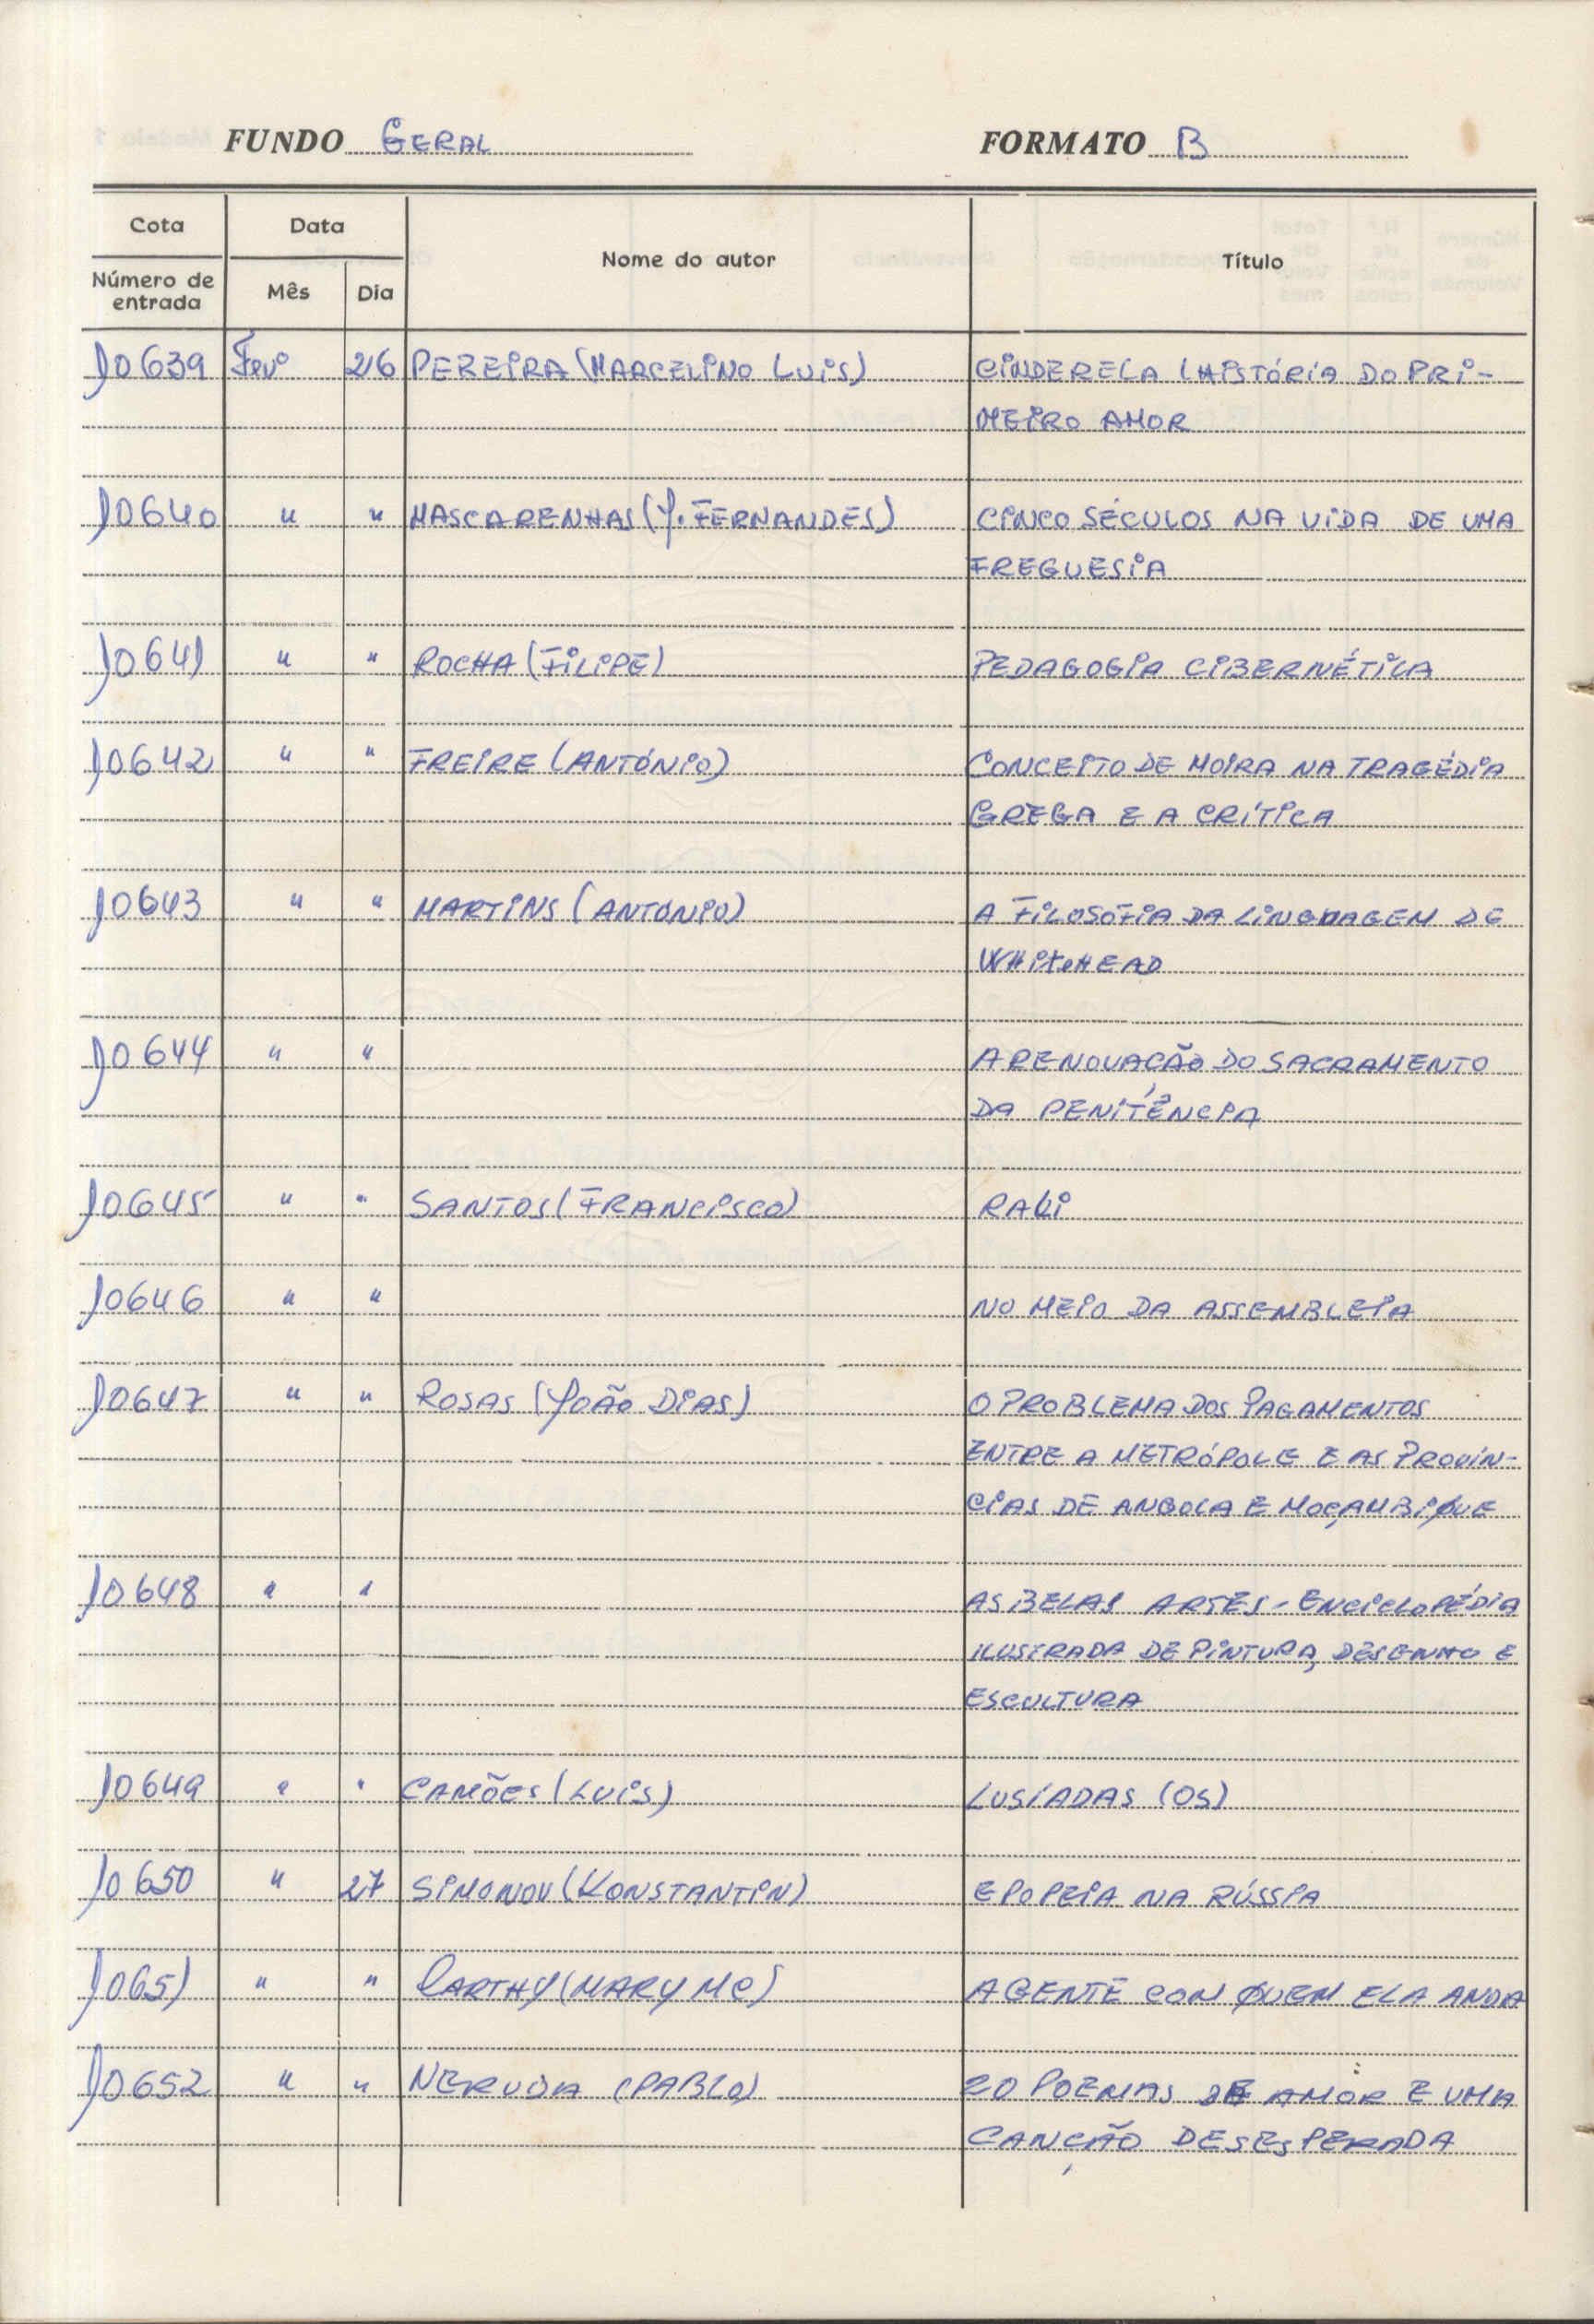 FUNDO GERAL FORMATO B
Cota Data Nome do autor Título
Número de entrada Mês Dia
10639 Fevº 26 PEREIRA (MARCELINO LUIS) CINDERELA (HISTÓRIA DO PRI-
MEIRO AMOR
10640 " " MASCARENHAS (J. FERNANDES) CINCO SÉCULOS NA VIDA DE UMA
FREGUESIA
10641 " " ROCHA (FILIPE) PEDAGOGIA CIBERNÉTICA
10642 " " FREIRE (ANTÓNIO) CONCEITO DE MOIRA NA TRAGÉDIA
GREGA E A CRÍTICA
10643 " " MARTINS (ANTÓNIO) A FILOSOFIA DA LINGUAGEM DE
WHITEHEAD
10644 " " A RENOVAÇÃO DO SACRAMENTO
DA PENITÊNCIA
10645 " " SANTOS (FRANCISCO) RALI
10646 " " NO MEIO DA ASSEMBLEIA
10647 " " ROSAS (JOÃO DIAS) O PROBLEMA DOS PAGAMENTOS
ENTRE A METRÓPOLE E AS PROVÍN-
CIAS DE ANGOLA E MOÇAMBIQUE
10648 " " AS BELAS ARTES - ENCICLOPÉDIA
ILUSTRADA DE PINTURA, DESENHO E
ESCULTURA
10649 " " CAMÕES (LUIS) LUSÍADAS (OS)
10650 " 27 SIMONOV (KONSTANTIN) EPOPEIA NA RÚSSIA
10651 " " CARTHY (MARY MC) A GENTE CON QUEM ELA ANDA
10652 " " NERUDA (PABLO) 20 POEMAS DE AMOR E UMA
CANÇÃO DESESPERADA